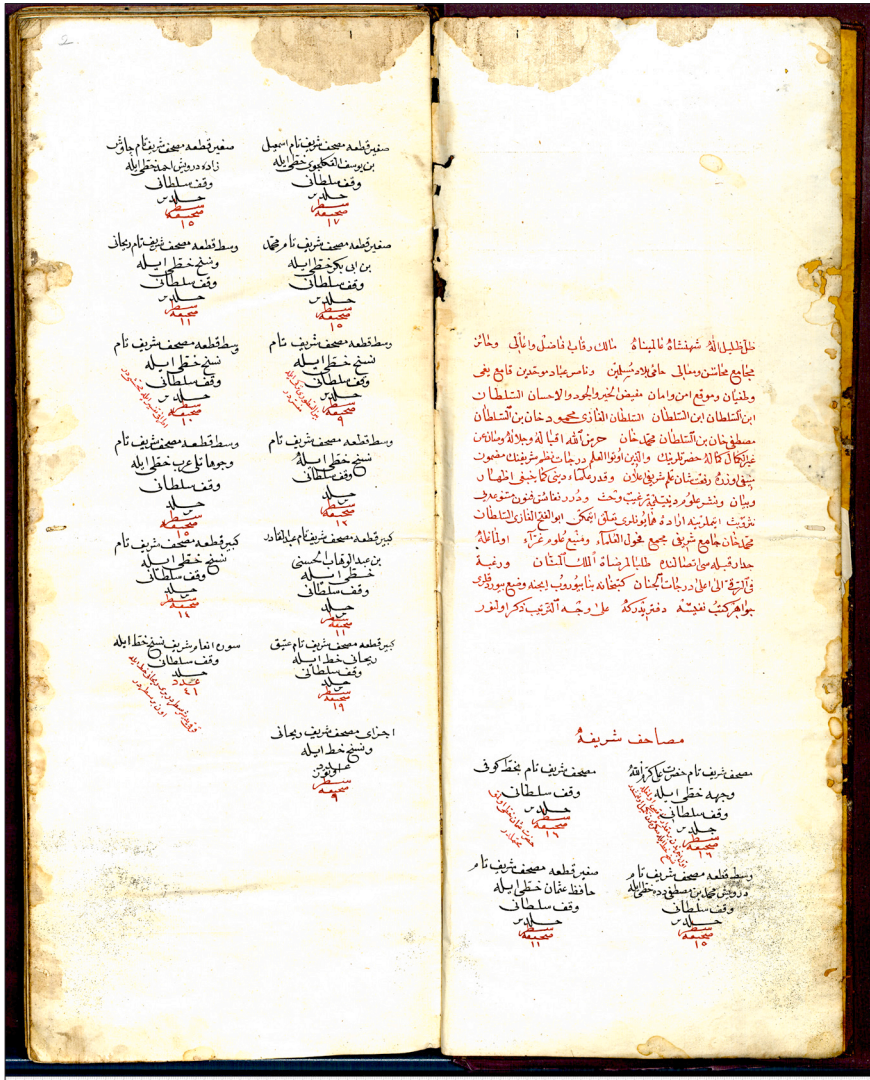 ظل ظليل اله شهنشاه عالمپناه مالك رقاب افاضل واعالى وحائز
مجامع محاسن ومعالى حامئ بلاد مسلمين وناصر عباد موحدين قامع بغى
وطغيان وموقع امن وامان مفيض الخير والجود والاحسان السلطان
ابن السلطان ابن السلطان السلطان الغازى محمود خان بن السلطان
مصطفى خان بن السلطان محمد خان حرس الله اقباله وجلاله وصان عن
عين الكمال كماله حضرتلرينك والذين اوتوا العلم درجات نظم شريفنك مضمون
منيفى اوزره رفعت شان علم شريفى اعلان وقدر علماء دينى كما ينبغى اظهار
وبيان ونشر علوم دينيه يه ترغيب وحث ودرر نفائس فنون متنوعه يى
ايتملرينه اراده همايونلرى تعلق ايتمكين ابو الفتح الغازى السلطان
محمد خان جامع شريفى مجمع فحول العلماء ومنبع علوم غراء اولمغله
جدار قبله سى اتصالنده طلبا لمرضاة الملك المنان ورغبة
فى الترقى الى اعلى درجات الجنان كتبخانه بنا بيوروب ايچنه وضع بيوردقلرى
جواهر كتب نفيسه دفتريدركه على وجه الترتيب ذكر اولنور
مصاحف شريفه
مصحف شريف تام حضرت على كرم الله
وجهه خطى ايله
وقف سلطانى
جلد س
سطر
صحيفه
١٦
مصحف شريف تام بخط كوفى
وقف سلطانى
جلد س
سطر
صحيفه
١٦
وسط قطعه مصحف شريف تام
درويش محمد بن مصطفى دده خطى ايله
وقف سلطانى
جلد س
سطر
صحيفه
١٥
صغير قطعه مصحف شريف تام
حافظ عثمان خطى ايله
وقف سلطانى
جلد س
سطر
صحيفه
١١
صغير قطعه مصحف شريف تام اسمعيل
بن يوسف خطى ايله
وقف سلطانى
جلد س
سطر
صحيفه
١٧
صغير قطعه مصحف شريف تام چاوش
زاده درويش احمد خطى ايله
وقف سلطانى
جلد س
سطر
صحيفه
١٥
صغير قطعه مصحف شريف تام محمد
بن ابى بكر خطى ايله
وقف سلطانى
جلد س
سطر
صحيفه
١٥
وسط قطعه مصحف شريف تام ريحانى
ونسخ خطى ايله
وقف سلطانى
جلد س
سطر
صحيفه
١١
وسط قطعه مصحف شريف تام
نسخ خطى ايله
وقف سلطانى
جلد س
سطر
صحيفه
٩
وسط قطعه مصحف شريف تام
نسخ خطى ايله
وقف سلطانى
جلد س
سطر
صحيفه
١٠
وسط قطعه مصحف شريف تام
نسخ خطى ايله
وقف سلطانى
جلد
سطر
صحيفه
١٢
وسط قطعه مصحف شريف تام
وجوهاتلى عرب خطى ايله
وقف سلطانى
جلد
سطر
صحيفه
١٥
كبير قطعه مصحف شريف تام عبد القادر
بن عبد الوهاب الحسينى
خطى ايله
وقف سلطانى
جلد
سطر
صحيفه
١١
كبير قطعه مصحف شريف تام
نسخ خطى ايله
وقف سلطانى
جلد
سطر
صحيفه
١٤
كبير قطعه مصحف شريف تام عتيق
ريحانى خط ايله
وقف سلطانى
جلد
سطر
صحيفه
١٩
سوره انعام شريف نسخ خط ايله
وقف سلطانى
جلد
عدد
٤١
اجزاى مصحف شريف ريحانى
ونسخ خط ايله
سطر
صحيفه
٩